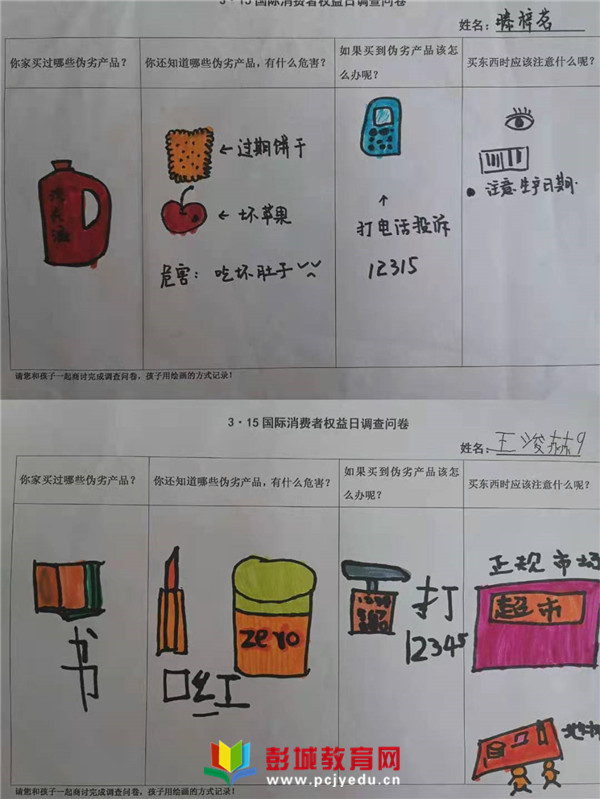 3·15国际消费者权益日调查问卷
姓名:
你家买过哪些伪劣产品?
你还知道哪些伪劣产品,有什么危害?
如果买到伪劣产品该怎
么办呢?
买东西时应该注意什么呢?
洗衣液
←过期饼干
←坏苹果
危害:吃坏肚子
↑
打电话投诉
12315
注意生产日期.
请您和孩子一起商讨完成调查问卷,孩子用绘画的方式记录!
3·15国际消费者权益日调查问卷
姓名:王浚赫9
你家买过哪些伪劣产品?
你还知道哪些伪劣产品,有什么危害?
如果买到伪劣产品该怎
么办呢?
买东西时应该注意什么呢?
书
口红
zero
打
12345
正规市场
超市
请您和孩子一起商讨完成调查问卷,孩子用绘画的方式记录!
彭城教育网
www.pcjyedu.cn